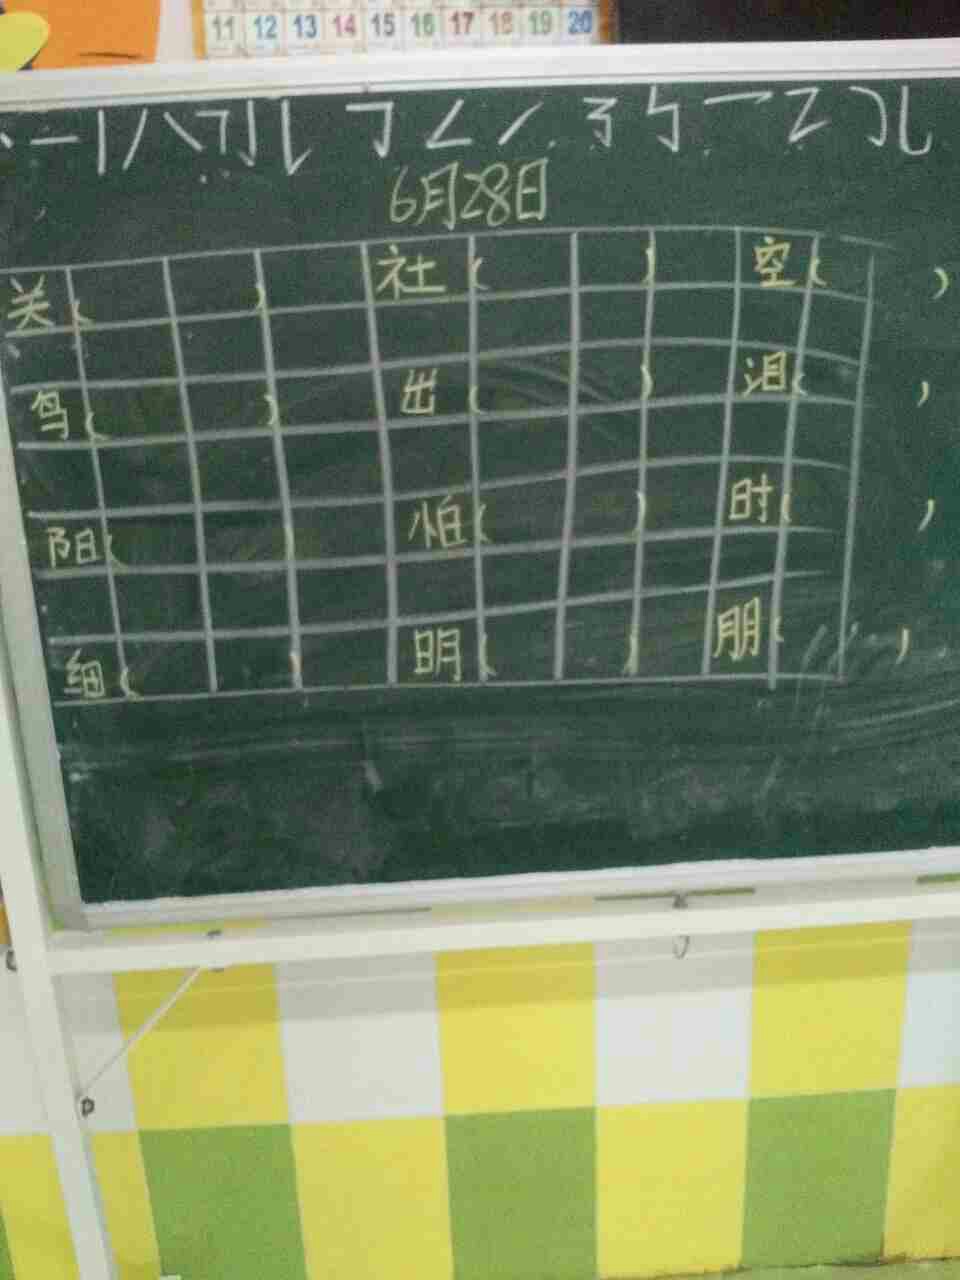 11 12 13 14 15 16 17 18 19 20
6月28日
关( ) 社( ) 空( )
鸟( ) 出( ) 泪( )
阳( ) 怕( ) 时( )
细( ) 明( ) 朋( )